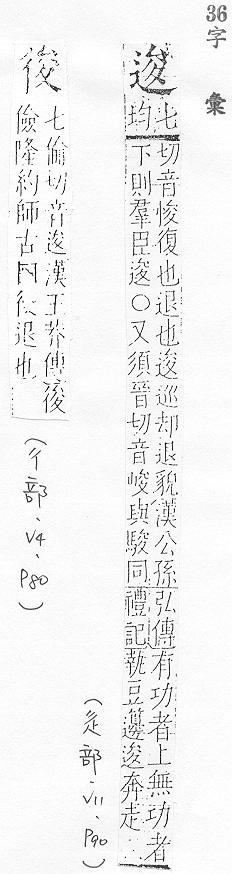 36
字
彙
逡
七
均
切音悛復也退也逡巡却退貌漢公孫弘傳有功者上無功者
下則羣臣逡○又須晉切音峻與駿同禮記執豆籩逡奔走
(辵部、V11、P90)
七倫切音逡漢王莽傳後
儉隆約師古曰 退也
(彳部、V4、P80)